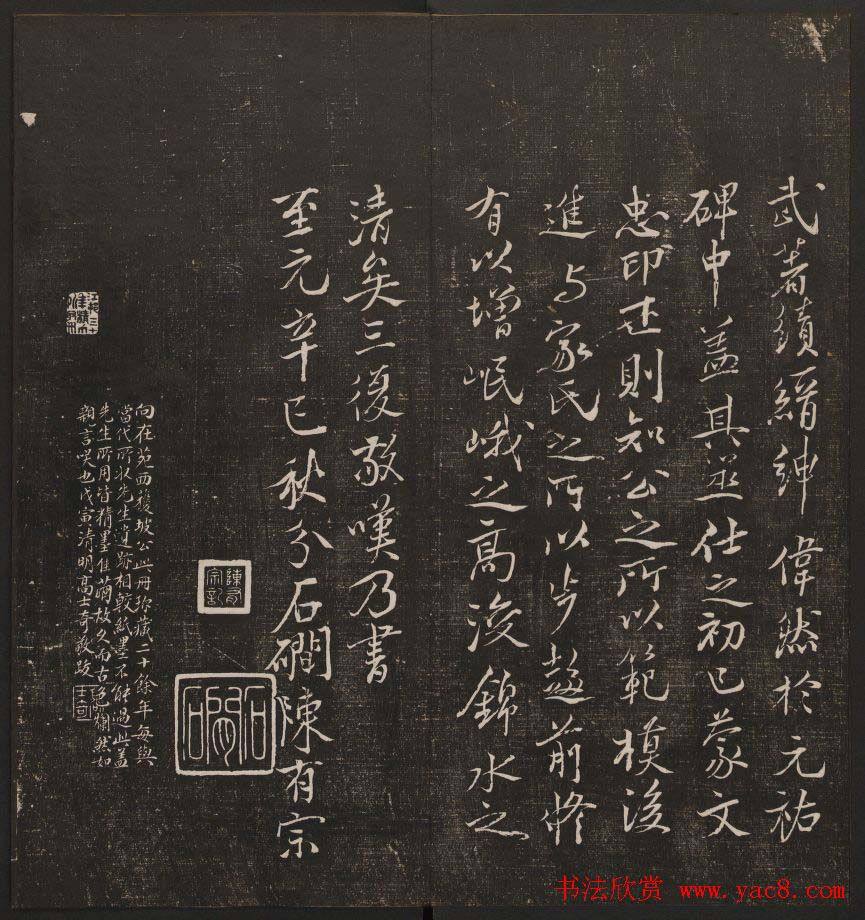 武著績縉紳偉然於元祐
碑中蓋其筮仕之初已蒙文
忠印述則知公之所以範模後
進与家氏之所以步趍前修
有以增岷峨之高浚錦水之
清矣三復敬嘆乃書
至元辛巳秋分石磵陳有宗
陳有宗記
石磵
向在苑西獲坡公此冊珍藏二十餘年每與
當代所收先生遺跡相較紙墨不能過此蓋
先生所用皆精墨佳繭故久而古色爛然如
親言笑也戊寅清明高士奇敬跋
士奇
书法欣赏 www.yac8.com